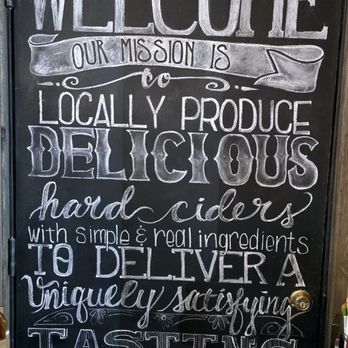 WELCOME
OUR MISSION IS
to
LOCALLY PRODUCE
DELICIOUS
hard ciders
with simple & real ingredients
TO DELIVER A
Uniquely satisfying
TASTING